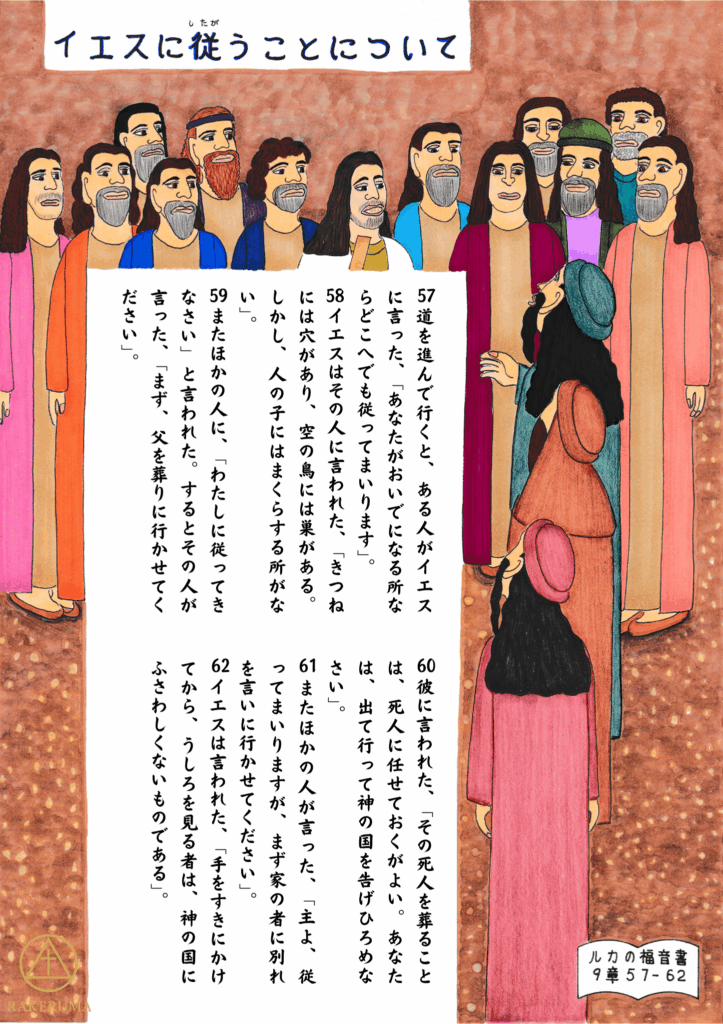 したが
イエスに従うことについて
57道を進んで行くと、ある人がイエス
に言った、「あなたがおいでになる所な
らどこへでも従ってまいります」。
58イエスはその人に言われた、「きつね
には穴があり、空の鳥には巣がある。
しかし、人の子にはまくらする所がな
い」。
59またほかの人に、「わたしに従ってき
なさい」と言われた。するとその人が
言った、「まず、父を葬りに行かせてく
ださい」。
60彼に言われた、「その死人を葬ること
は、死人に任せておくがよい。あなた
は、出て行って神の国を告げひろめな
さい」。
61またほかの人が言った、「主よ、従
ってまいりますが、まず家の者に別れ
を言いに行かせてください」。
62イエスは言われた、「手をすきにかけ
てから、うしろを見る者は、神の国に
ふさわしくないものである」。
ルカの福音書
9章57-62
RAKERUMA